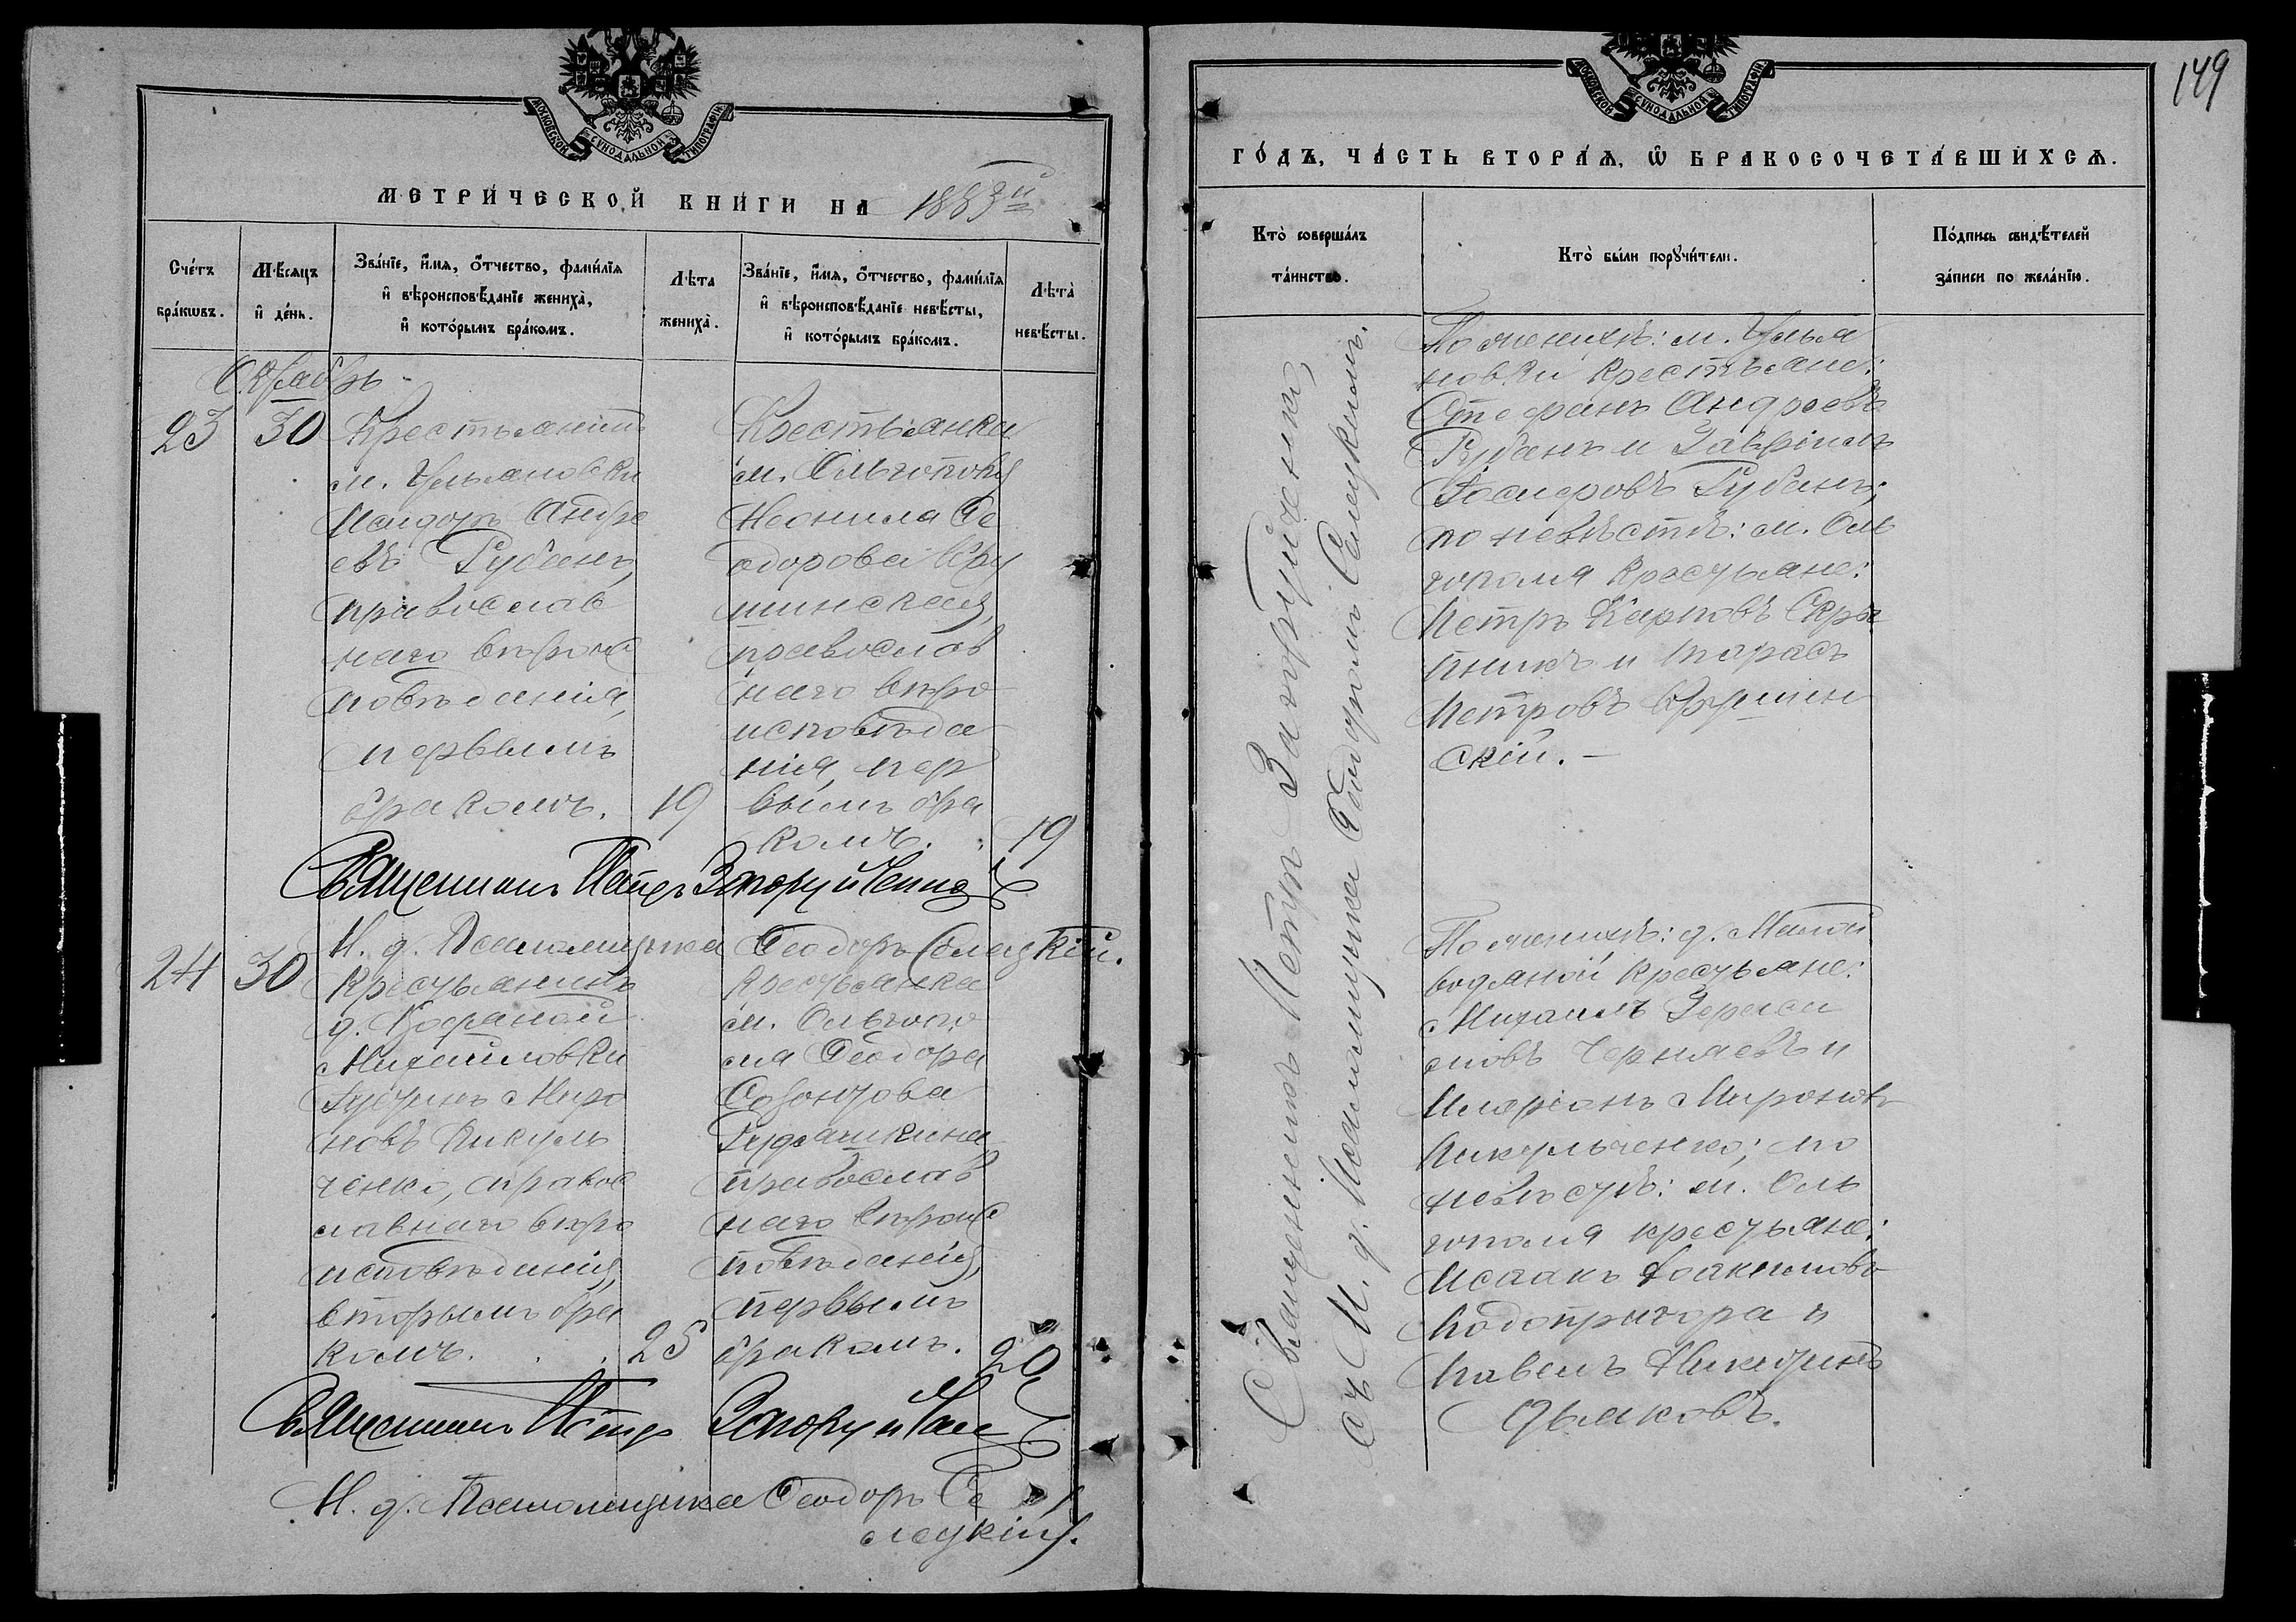 МОСКОВСКОЙ СѴНОДАЛЬНОЙ ТИПОГРАФІИ
МЕТРИ́ЧЕСКОЙ КНИ́ГИ НА 1883й
Сче́тъ бра́кѡвъ.
Мѣ́сяцъ и де́нь.
Зва́нїе, и́мя, о́тчество, фами́лїя
и вѣроисповѣ́данїе жениха̀,
и кото́рымъ бра́комъ.
Лѣта жениха̀.
Зва́нїе, и́мя, о́тчество, фами́лїя
и вѣроисповѣ́данїе невѣ́сты,
и кото́рымъ бра́комъ.
Лѣта̀ невѣ́сты.
Октябрь
23
30
Крестьянинъ
м. Ульяновки
Исидоръ Андре
евъ Рубанъ,
православ
наго вѣроис
повѣданія,
первымъ
бракомъ.
19
Крестьянка
м. Ольгополя
Неонила Ѳе
одорова Кру
шинская,
православ
наго вѣро
исповѣда
нія, пер
вымъ бра
комъ.
19
Священникъ Петръ Загоруйченко
И. д. Псаломщика Ѳеодоръ Селецкій.
24
30
Крестьянинъ
д.
Михайловки
Миро
новъ Пикуль
ченко, правос
лавнаго вѣро
исповѣданія,
вторымъ бра
комъ.
25
Крестьянка
м. Ольгопо
ля Ѳеодора
Созонтова
православ
наго вѣроис
повѣданія,
первымъ
бракомъ.
20
Священникъ Петръ Загоруйченко
И. д. Псаломщика Ѳеодоръ Се
лецкій.
149
МОСКОВСКОЙ СѴНОДАЛЬНОЙ ТИПОГРАФІИ
ГО́ДЪ, ЧА́СТЬ ВТОРА́Я, Ѡ БРАКОСОЧЕТА́ВШИХСЯ.
Кто̀ соверша́лъ
та́инство.
Кто̀ бы́ли порꙋчи́тели.
По́дпись свидѣ́телей
за́писи по жела́нїю.
Священникъ Петръ Загоруйченко,
съ И. д. Псаломщика Ѳеодоромъ Селецкимъ.
По женихѣ: м. Улья
новки крестьяне:
Стефанъ Андреевъ
Рубанъ и Гавріилъ
Рубанъ;
по невѣстѣ: м. Оль
гополя крестьяне:
Петръ Карповъ Скры
пникъ и Тарасъ
Петровъ Крушин
скій. –
По женихѣ: д. Малой
водяной крестьяне:
Михаилъ Гераси
мовъ Черняевъ и
Иларіонъ Мироновъ
Пикульченко; по
невѣстѣ: м. Оль
гополя крестьяне:
Исаакъ Іоакимовъ
Подопригора и
Павелъ Никитинъ
Дьяковъ.